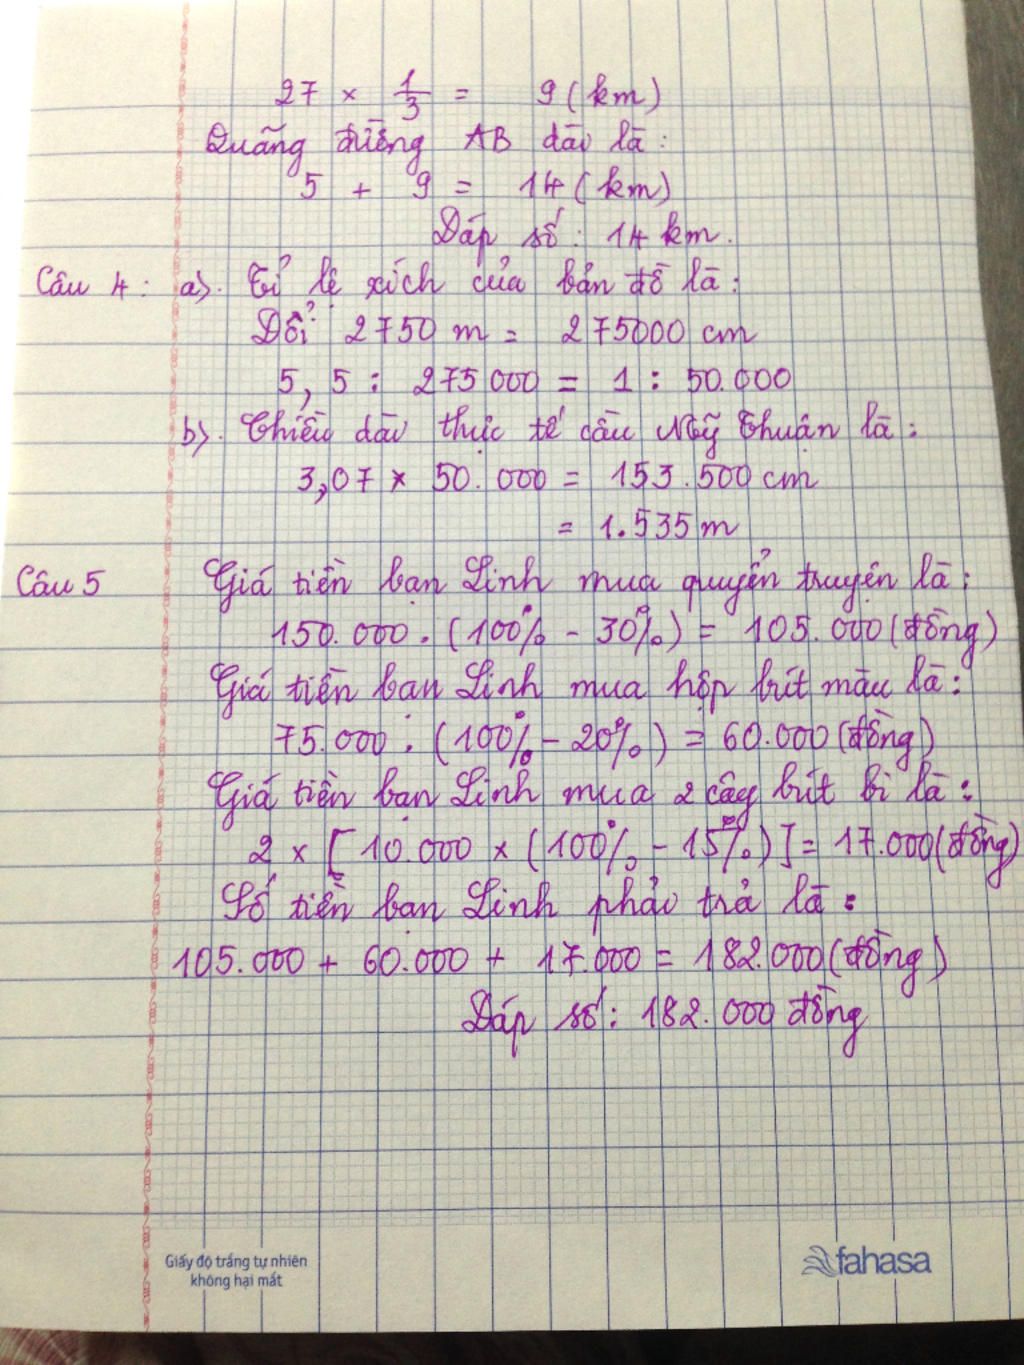 27 × 1/3 = 9 (km)
Quãng đường AB dài là:
5 + 9 = 14 (km)
Đáp số: 14 km.
Câu 4: a). Tỉ lệ xích của bản đồ là:
Đổi 2750 m = 275000 cm
5,5 : 275 000 = 1 : 50.000
b). Chiều dài thực tế cầu Mỹ Thuận là:
3,07 × 50.000 = 153.500 cm
= 1.535 m
Câu 5 Giá tiền bạn Linh mua quyển truyện là:
150.000 . (100% - 30%) = 105.000 (đồng)
Giá tiền bạn Linh mua hộp bút màu là:
75.000 . (100% - 20%) = 60.000 (đồng)
Giá tiền bạn Linh mua 2 cây bút bi là:
2 × [10.000 × (100% - 15%)] = 17.000 (đồng)
Số tiền bạn Linh phải trả là:
105.000 + 60.000 + 17.000 = 182.000 (đồng)
Đáp số: 182.000 đồng
Giấy độ trắng tự nhiên
không hại mắt
fahasa